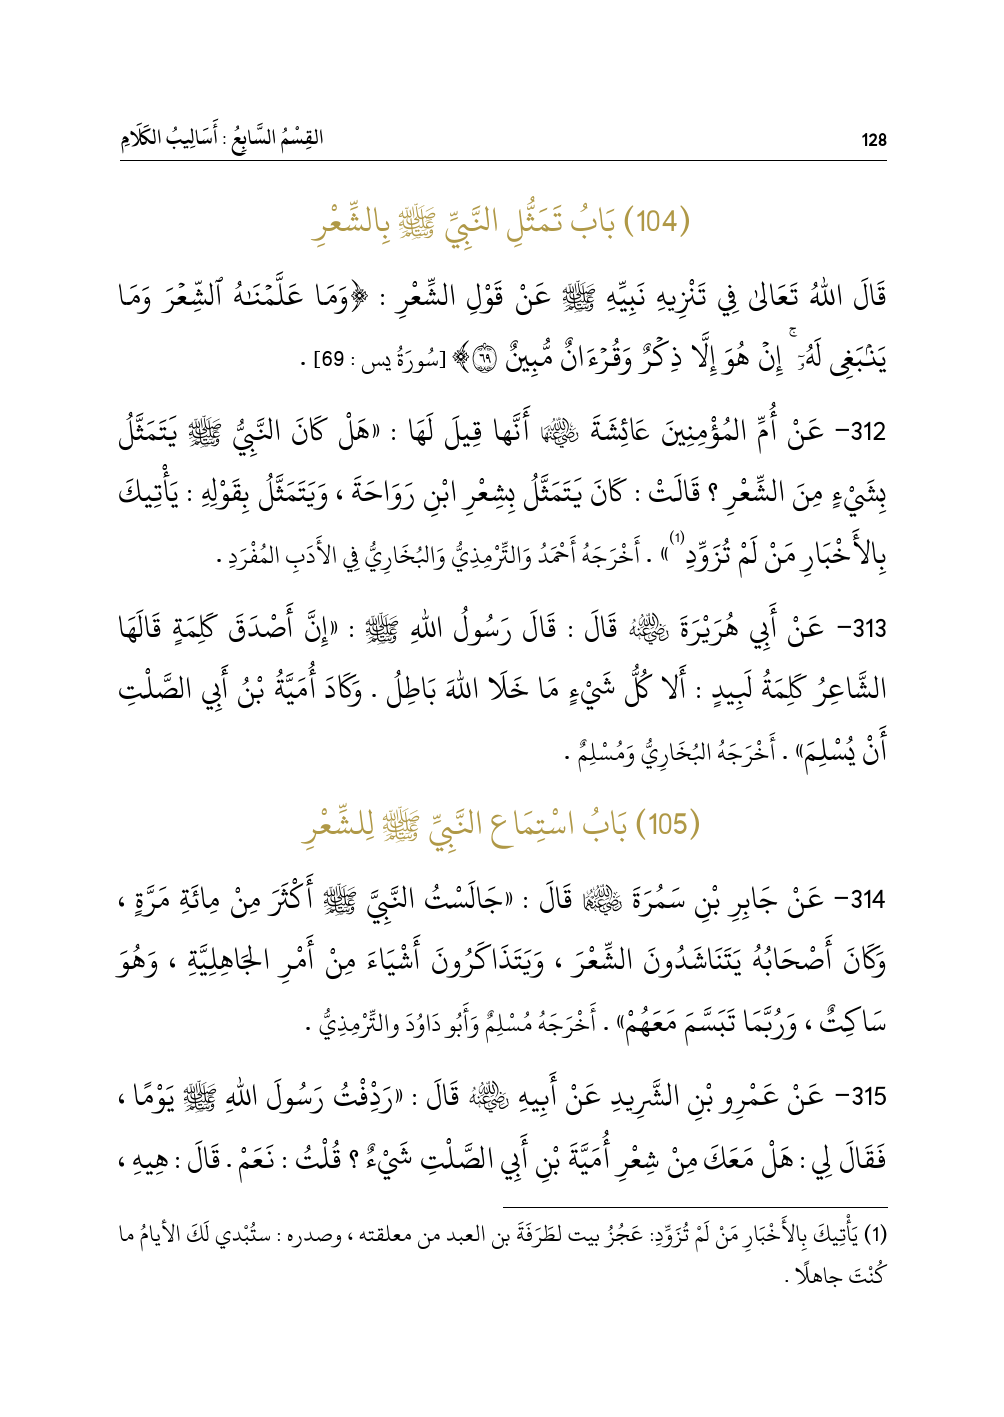 128
القِسْمُ السَّابِعُ : أَسَالِيبُ الكَلَامِ
(104) بَابُ تَمَثُّلِ النَّبِيِّ ﷺ بِالشِّعْرِ
قَالَ اللهُ تَعَالىٰ فِي تَنْزِيهِ نَبِيِّهِ ﷺ عَنْ قَوْلِ الشِّعْرِ : ﴿وَمَا عَلَّمۡنَٰهُ ٱلشِّعۡرَ وَمَا
يَنۢبَغِي لَهُۥٓۚ إِنۡ هُوَ إِلَّا ذِكۡرٌ وَقُرۡءَانٌ مُّبِينٌ ٦٩﴾ [سُورَةُ يس : 69] .
312- عَنْ أُمِّ المُؤْمِنِينَ عَائِشَةَ رَضِيَ اللهُ عَنْهَا أَنَّها قِيلَ لَهَا : «هَلْ كَانَ النَّبِيُّ ﷺ يَتَمَثَّلُ
بِشَيْءٍ مِنَ الشِّعْرِ ؟ قَالَتْ : كَانَ يَتَمَثَّلُ بِشِعْرِ ابْنِ رَوَاحَةَ ، وَيَتَمَثَّلُ بِقَوْلِهِ : يَأْتِيكَ
بِالأَخْبَارِ مَنْ لَمْ تُزَوِّدِ(1)» . أَخْرَجَهُ أَحْمَدُ وَالتِّرْمِذِيُّ وَالبُخَارِيُّ فِي الأَدَبِ المُفْرَدِ .
313- عَنْ أَبِي هُرَيْرَةَ رَضِيَ اللهُ عَنْهُ قَالَ : قَالَ رَسُولُ اللهِ ﷺ : «إِنَّ أَصْدَقَ كَلِمَةٍ قَالَهَا
الشَّاعِرُ كَلِمَةُ لَبِيدٍ : أَلا كُلُّ شَيْءٍ مَا خَلَا اللهَ بَاطِلُ . وَكَادَ أُمَيَّةُ بْنُ أَبِي الصَّلْتِ
أَنْ يُسْلِمَ» . أَخْرَجَهُ البُخَارِيُّ وَمُسْلِمٌ .
(105) بَابُ اسْتِمَاعِ النَّبِيِّ ﷺ لِلشِّعْرِ
314- عَنْ جَابِرِ بْنِ سَمُرَةَ رَضِيَ اللهُ عَنْهُمَا قَالَ : «جَالَسْتُ النَّبِيَّ ﷺ أَكْثَرَ مِنْ مِائَةِ مَرَّةٍ ،
وَكَانَ أَصْحَابُهُ يَتَنَاشَدُونَ الشِّعْرَ ، وَيَتَذَاكَرُونَ أَشْيَاءَ مِنْ أَمْرِ الجَاهِلِيَّةِ ، وَهُوَ
سَاكِتٌ ، وَرُبَّمَا تَبَسَّمَ مَعَهُمْ» . أَخْرَجَهُ مُسْلِمٌ وَأَبُو دَاوُدَ والتِّرْمِذِيُّ .
315- عَنْ عَمْرِو بْنِ الشَّرِيدِ عَنْ أَبِيهِ رَضِيَ اللهُ عَنْهُ قَالَ : «رَدِفْتُ رَسُولَ اللهِ ﷺ يَوْمًا ،
فَقَالَ لِي : هَلْ مَعَكَ مِنْ شِعْرِ أُمَيَّةَ بْنِ أَبِي الصَّلْتِ شَيْءٌ ؟ قُلْتُ : نَعَمْ . قَالَ : هِيهِ ،
(1) يَأْتِيكَ بِالأَخْبَارِ مَنْ لَمْ تُزَوِّدِ: عَجُزُ بيت لطَرَفَةَ بن العبد من معلقته ، وصدره : ستُبْدي لَكَ الأيامُ ما
كُنْتَ جاهلًا .